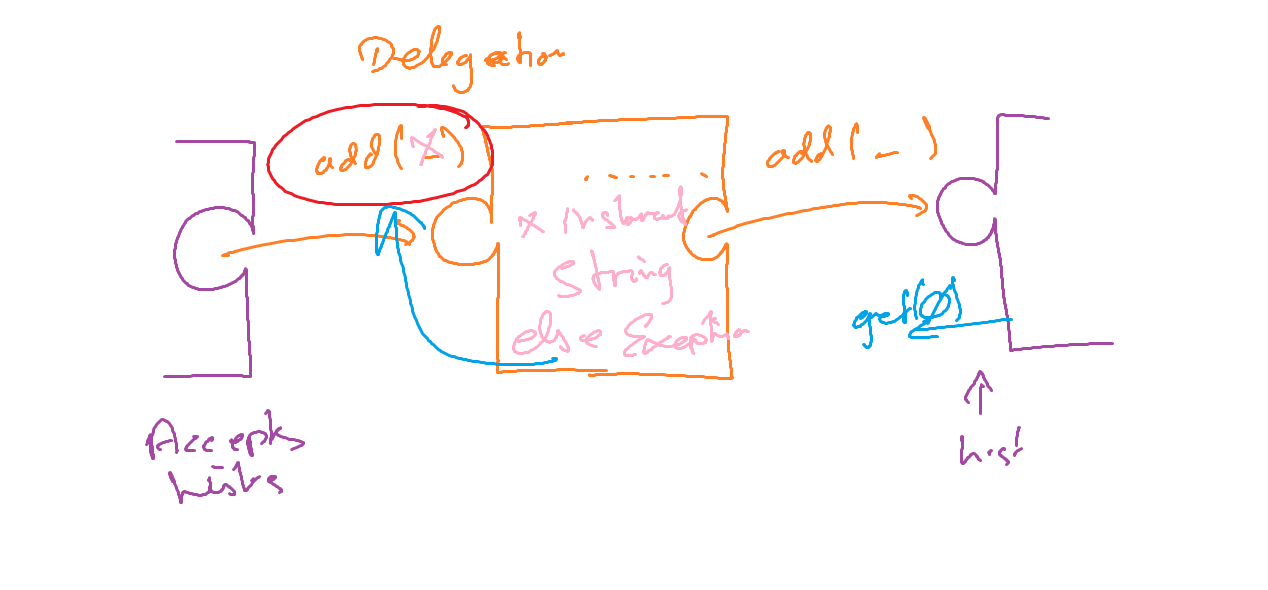 Delegation
add(x)
add(_)
x instanceof
String
else Exception
get(0)
Accepts
Lists
List